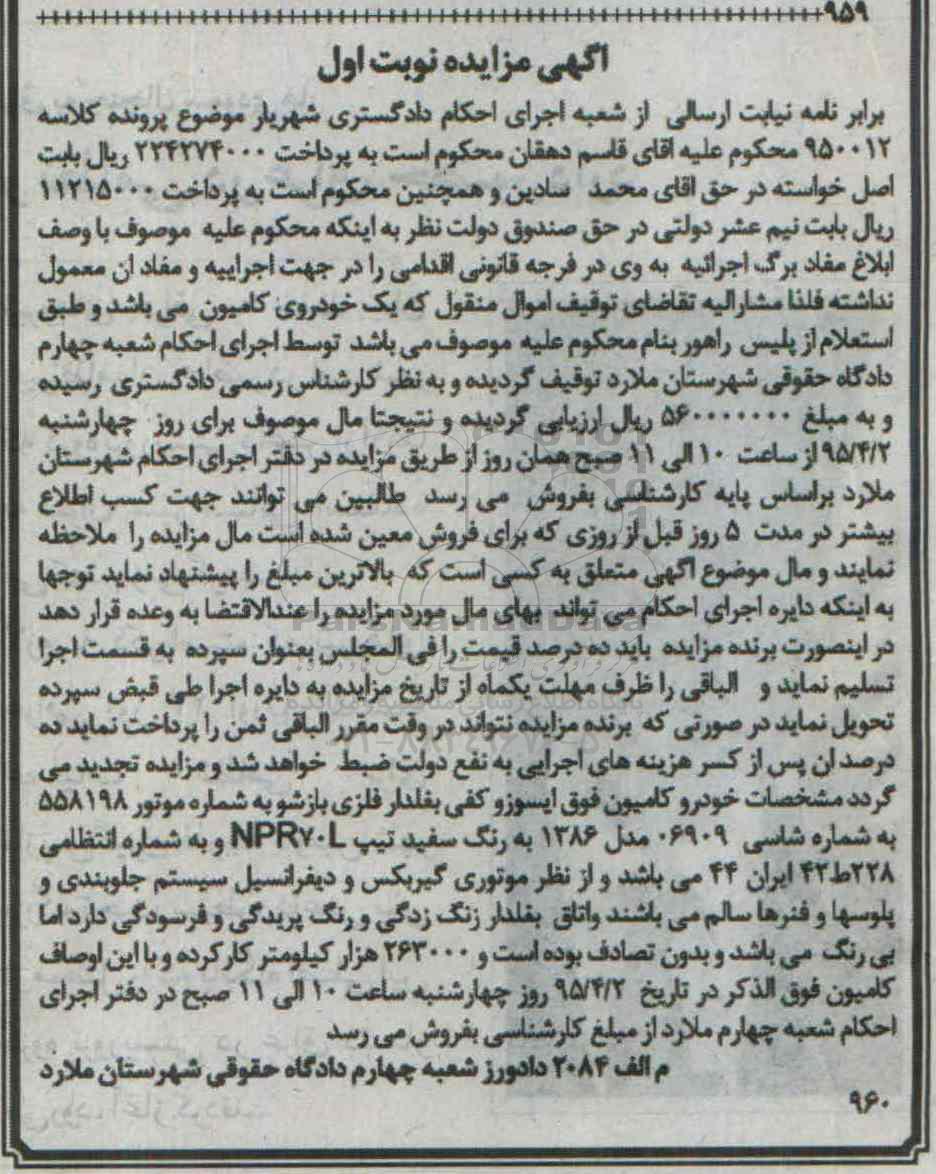 ۹۵۹
آگهی مزایده نوبت اول
برابر نامه نیابت ارسالی از شعبه اجرای احکام دادگستری شهریار موضوع پرونده کلاسه
۹۵۰۰۱۲ محکوم علیه اقای قاسم دهقان محکوم است به پرداخت ۲۲۴۲۷۴۰۰۰ ریال بابت
اصل خواسته در حق اقای محمد سادین و همچنین محکوم است به پرداخت ۱۱۲۱۵۰۰۰
ریال بابت نیم عشر دولتی در حق صندوق دولت نظر به اینکه محکوم علیه موصوف با وصف
ابلاغ مفاد برگ اجرائیه به وی در فرجه قانونی اقدامی را در جهت اجراییه و مفاد ان معمول
نداشته فلذا مشارالیه تقاضای توقیف اموال منقول که یک خودروی کامیون می باشد و طبق
استعلام از پلیس راهور بنام محکوم علیه موصوف می باشد توسط اجرای احکام شعبه چهارم
دادگاه حقوقی شهرستان ملارد توقیف گردیده و به نظر کارشناس رسمی دادگستری رسیده
و به مبلغ ۵۶۰۰۰۰۰۰۰ ریال ارزیابی گردیده و نتیجتا مال موصوف برای روز چهارشنبه
۹۵/۴/۲ از ساعت ۱۰ الی ۱۱ صبح همان روز از طریق مزایده در دفتر اجرای احکام شهرستان
ملارد براساس پایه کارشناسی بفروش می رسد طالبین می توانند جهت کسب اطلاع
بیشتر در مدت ۵ روز قبل از روزی که برای فروش معین شده است مال مزایده را ملاحظه
نمایند و مال موضوع اگهی متعلق به کسی است که بالاترین مبلغ را پیشنهاد نماید توجها
به اینکه دایره اجرای احکام می تواند بهای مال مورد مزایده را عندالاقتضا به وعده قرار دهد
در اینصورت برنده مزایده باید ده درصد قیمت را فی المجلس بعنوان سپرده به قسمت اجرا
تسلیم نماید و الباقی را ظرف مهلت یکماه از تاریخ مزایده به دایره اجرا طی قبض سپرده
تحویل نماید در صورتی که برنده مزایده نتواند در وقت مقرر الباقی ثمن را پرداخت نماید ده
درصد ان پس از کسر هزینه های اجرایی به نفع دولت ضبط خواهد شد و مزایده تجدید می
گردد مشخصات خودرو کامیون فوق ایسوزو کفی بغلدار فلزی بازشو به شماره موتور ۵۵۸۱۹۸
به شماره شاسی ۰۶۹۰۹ مدل ۱۳۸۶ به رنگ سفید تیپ NPR۷۰L و به شماره انتظامی
۲۲۸ط۴۲ ایران ۴۴ می باشد و از نظر موتوری گیربکس و دیفرانسیل سیستم جلوبندی و
پلوسها و فنرها سالم می باشند واتاق بغلدار زنگ زدگی و رنگ پریدگی و فرسودگی دارد اما
بی رنگ می باشد و بدون تصادف بوده است و ۲۶۳۰۰۰ هزار کیلومتر کارکرده و با این اوصاف
کامیون فوق الذکر در تاریخ ۹۵/۴/۲ روز چهارشنبه ساعت ۱۰ الی ۱۱ صبح در دفتر اجرای
احکام شعبه چهارم ملارد از مبلغ کارشناسی بفروش می رسد
م الف ۲۰۸۴ دادورز شعبه چهارم دادگاه حقوقی شهرستان ملارد
۹۶۰